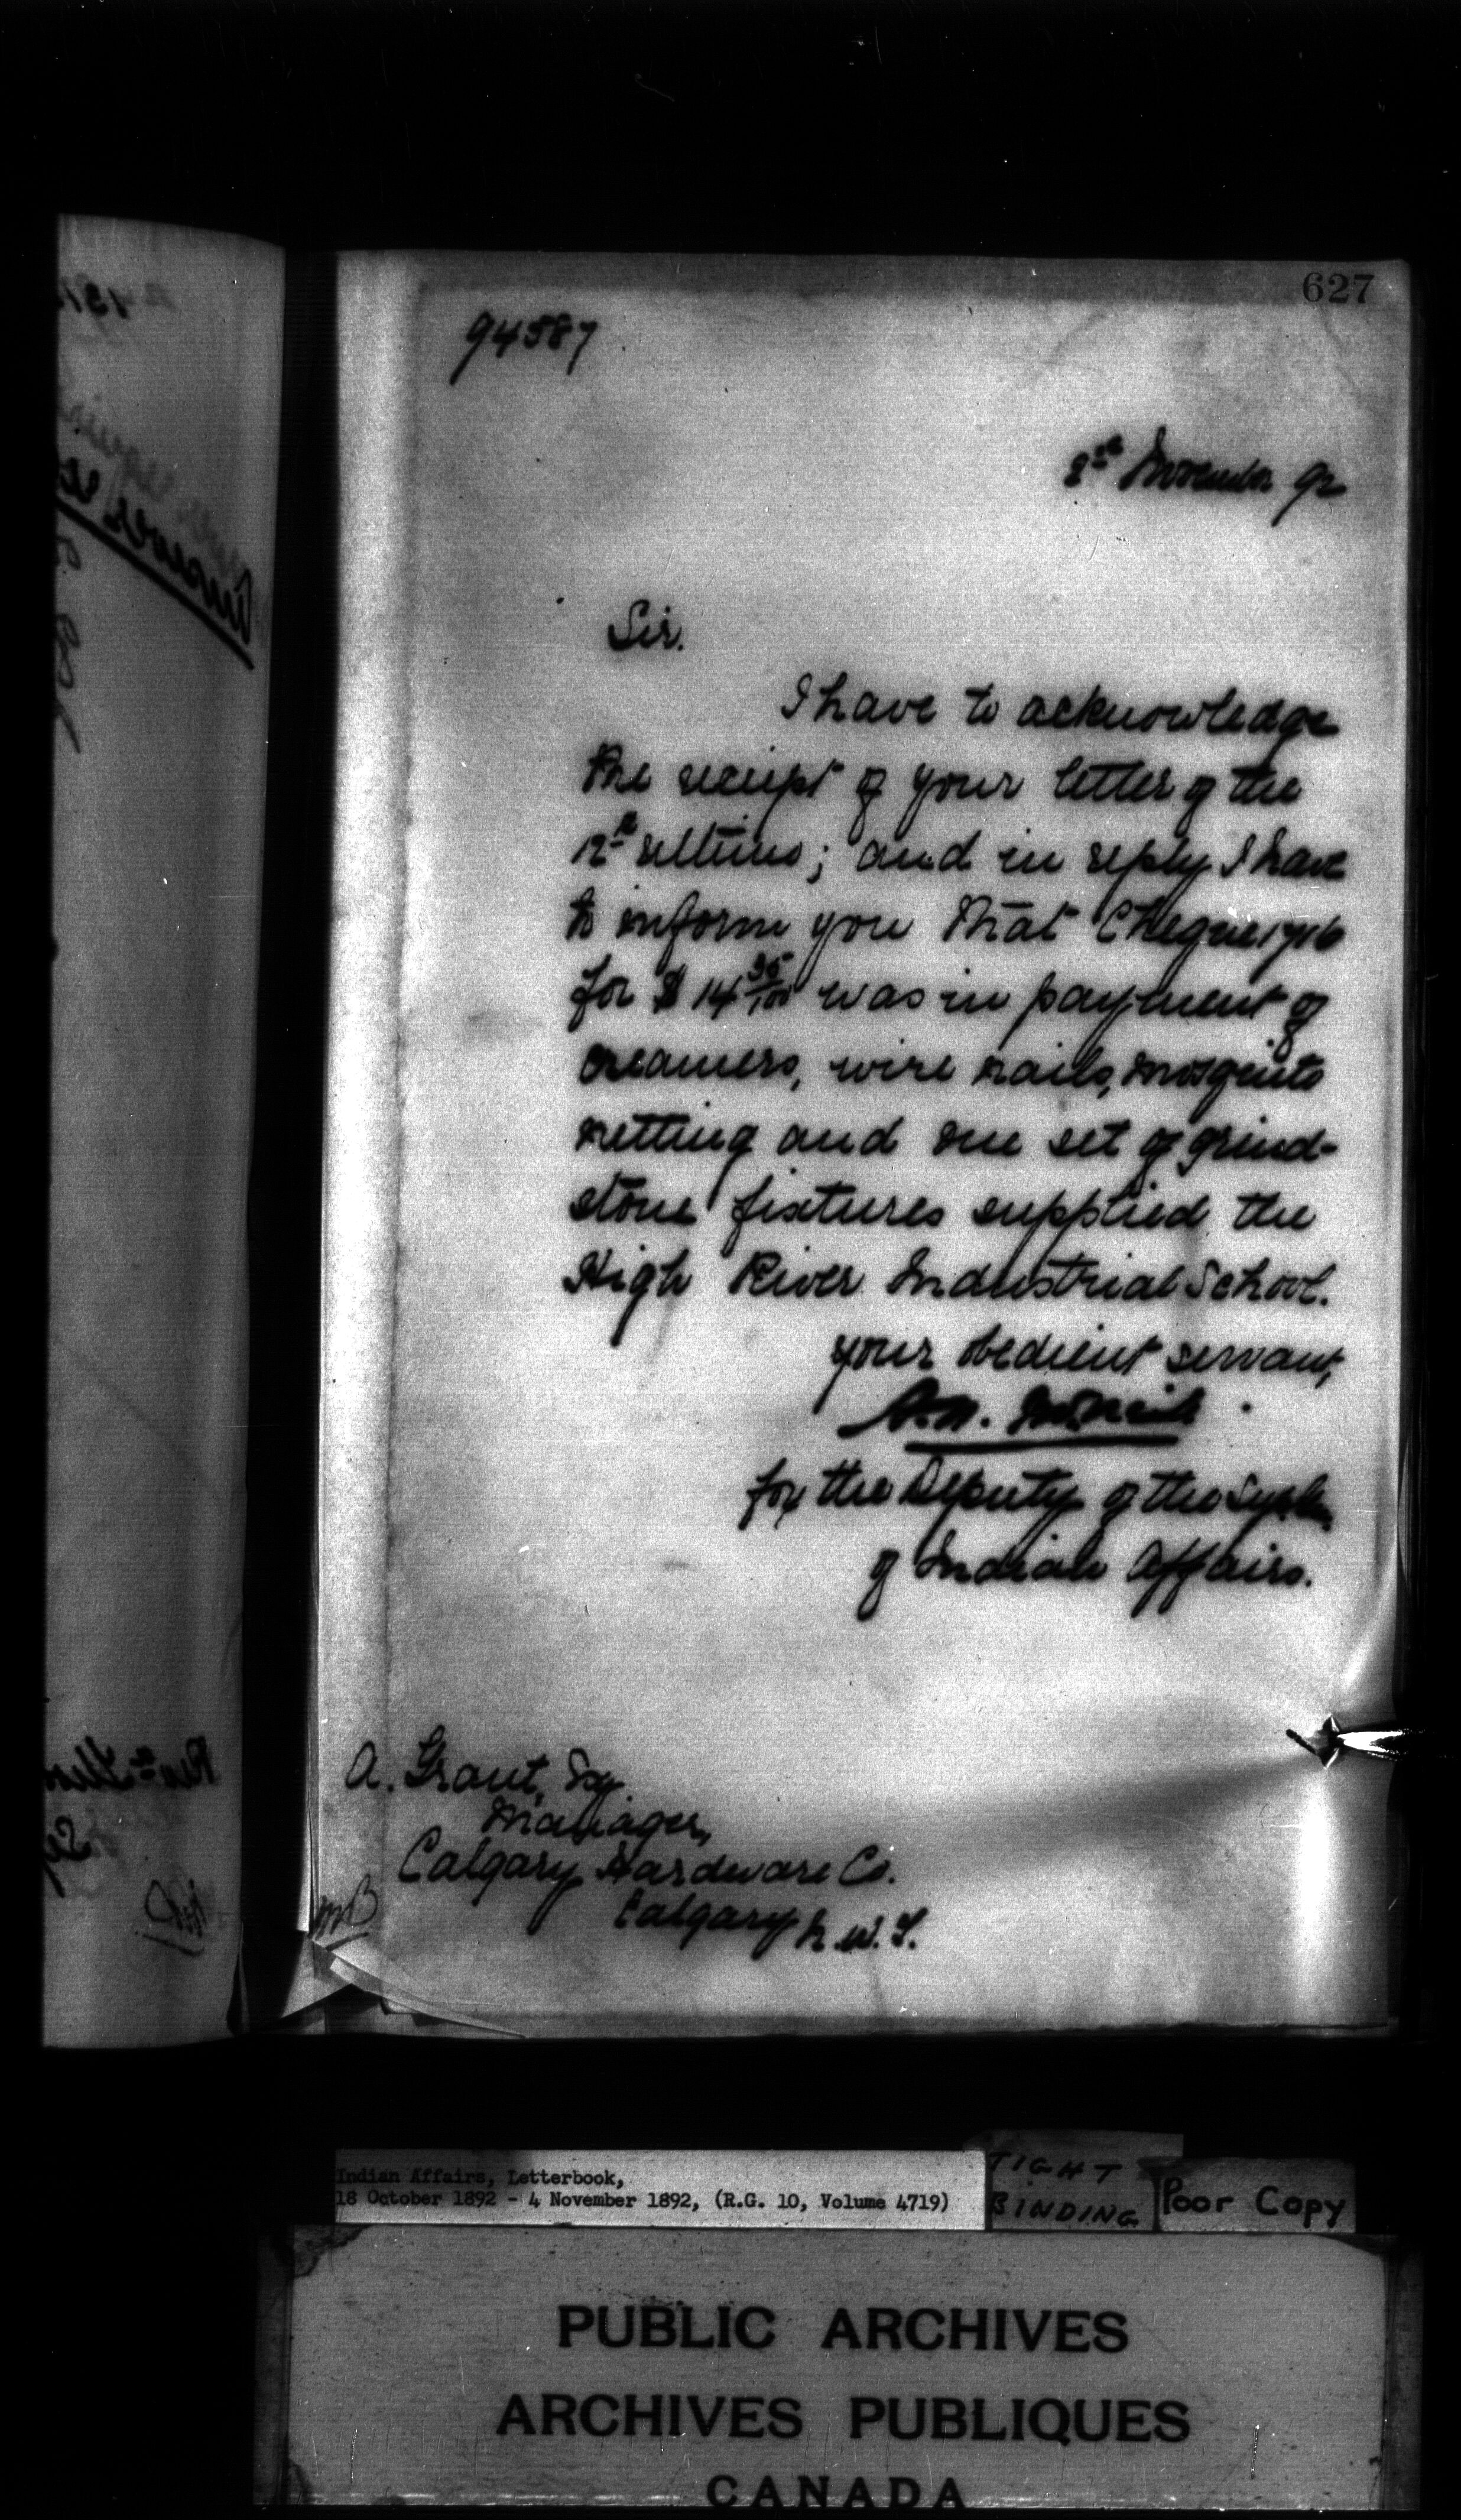 627
94587
2nd November 92
Sir.
I have to acknowledge
the receipt of your letter of the
12th ultimo; and in reply I have
to inform you that Cheque 1716
for $14 35/100 was in payment of
creamers, wire nails, mosquito
netting and one set of grind-
stone fixtures supplied the
High River Industrial School.
your obedient servant,
for the Deputy of the Supt.
of Indian Affairs.
A. Grant, Esq
Manager,
Calgary Hardware Co.
Calgary N.W.T.
MB
Indian Affairs, Letterbook,
18 October 1892 - 4 November 1892, (R.G. 10, Volume 4719)
TIGHT
BINDING
Poor Copy
PUBLIC ARCHIVES
ARCHIVES PUBLIQUES
CANADA